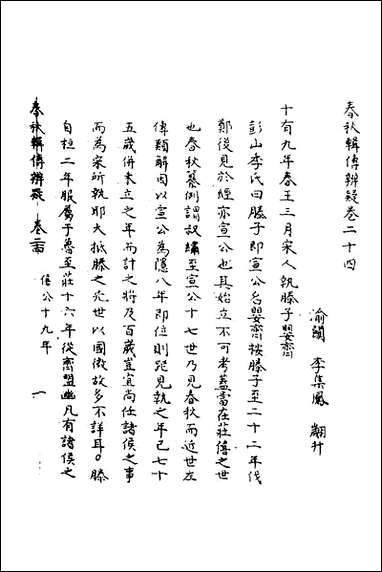 春秋輯傳辨疑卷二十四
渝關 李集鳳 翽升
十有九年春王三月宋人執滕子嬰齊
彭山李氏曰滕子即宣公名嬰齊按滕子至二十二年伐
鄭後見於經亦宣公也其始立不可考蓋當在莊僖之世
也春秋纂例謂叔繡至宣公十七世乃見春秋而近世左
傳類解因以宣公為隱八年即位則從見執之年已七十
五歲併未立之年而計之將及百歲豈宜尚任諸侯之事
而為宋所執耶大抵滕之茫世以國微故多不詳耳○滕
自桓二年服屬于魯至莊十六年從齊盟幽凡有諸侯之
春秋輯傳辨疑 卷二十四 僖公十九年 一